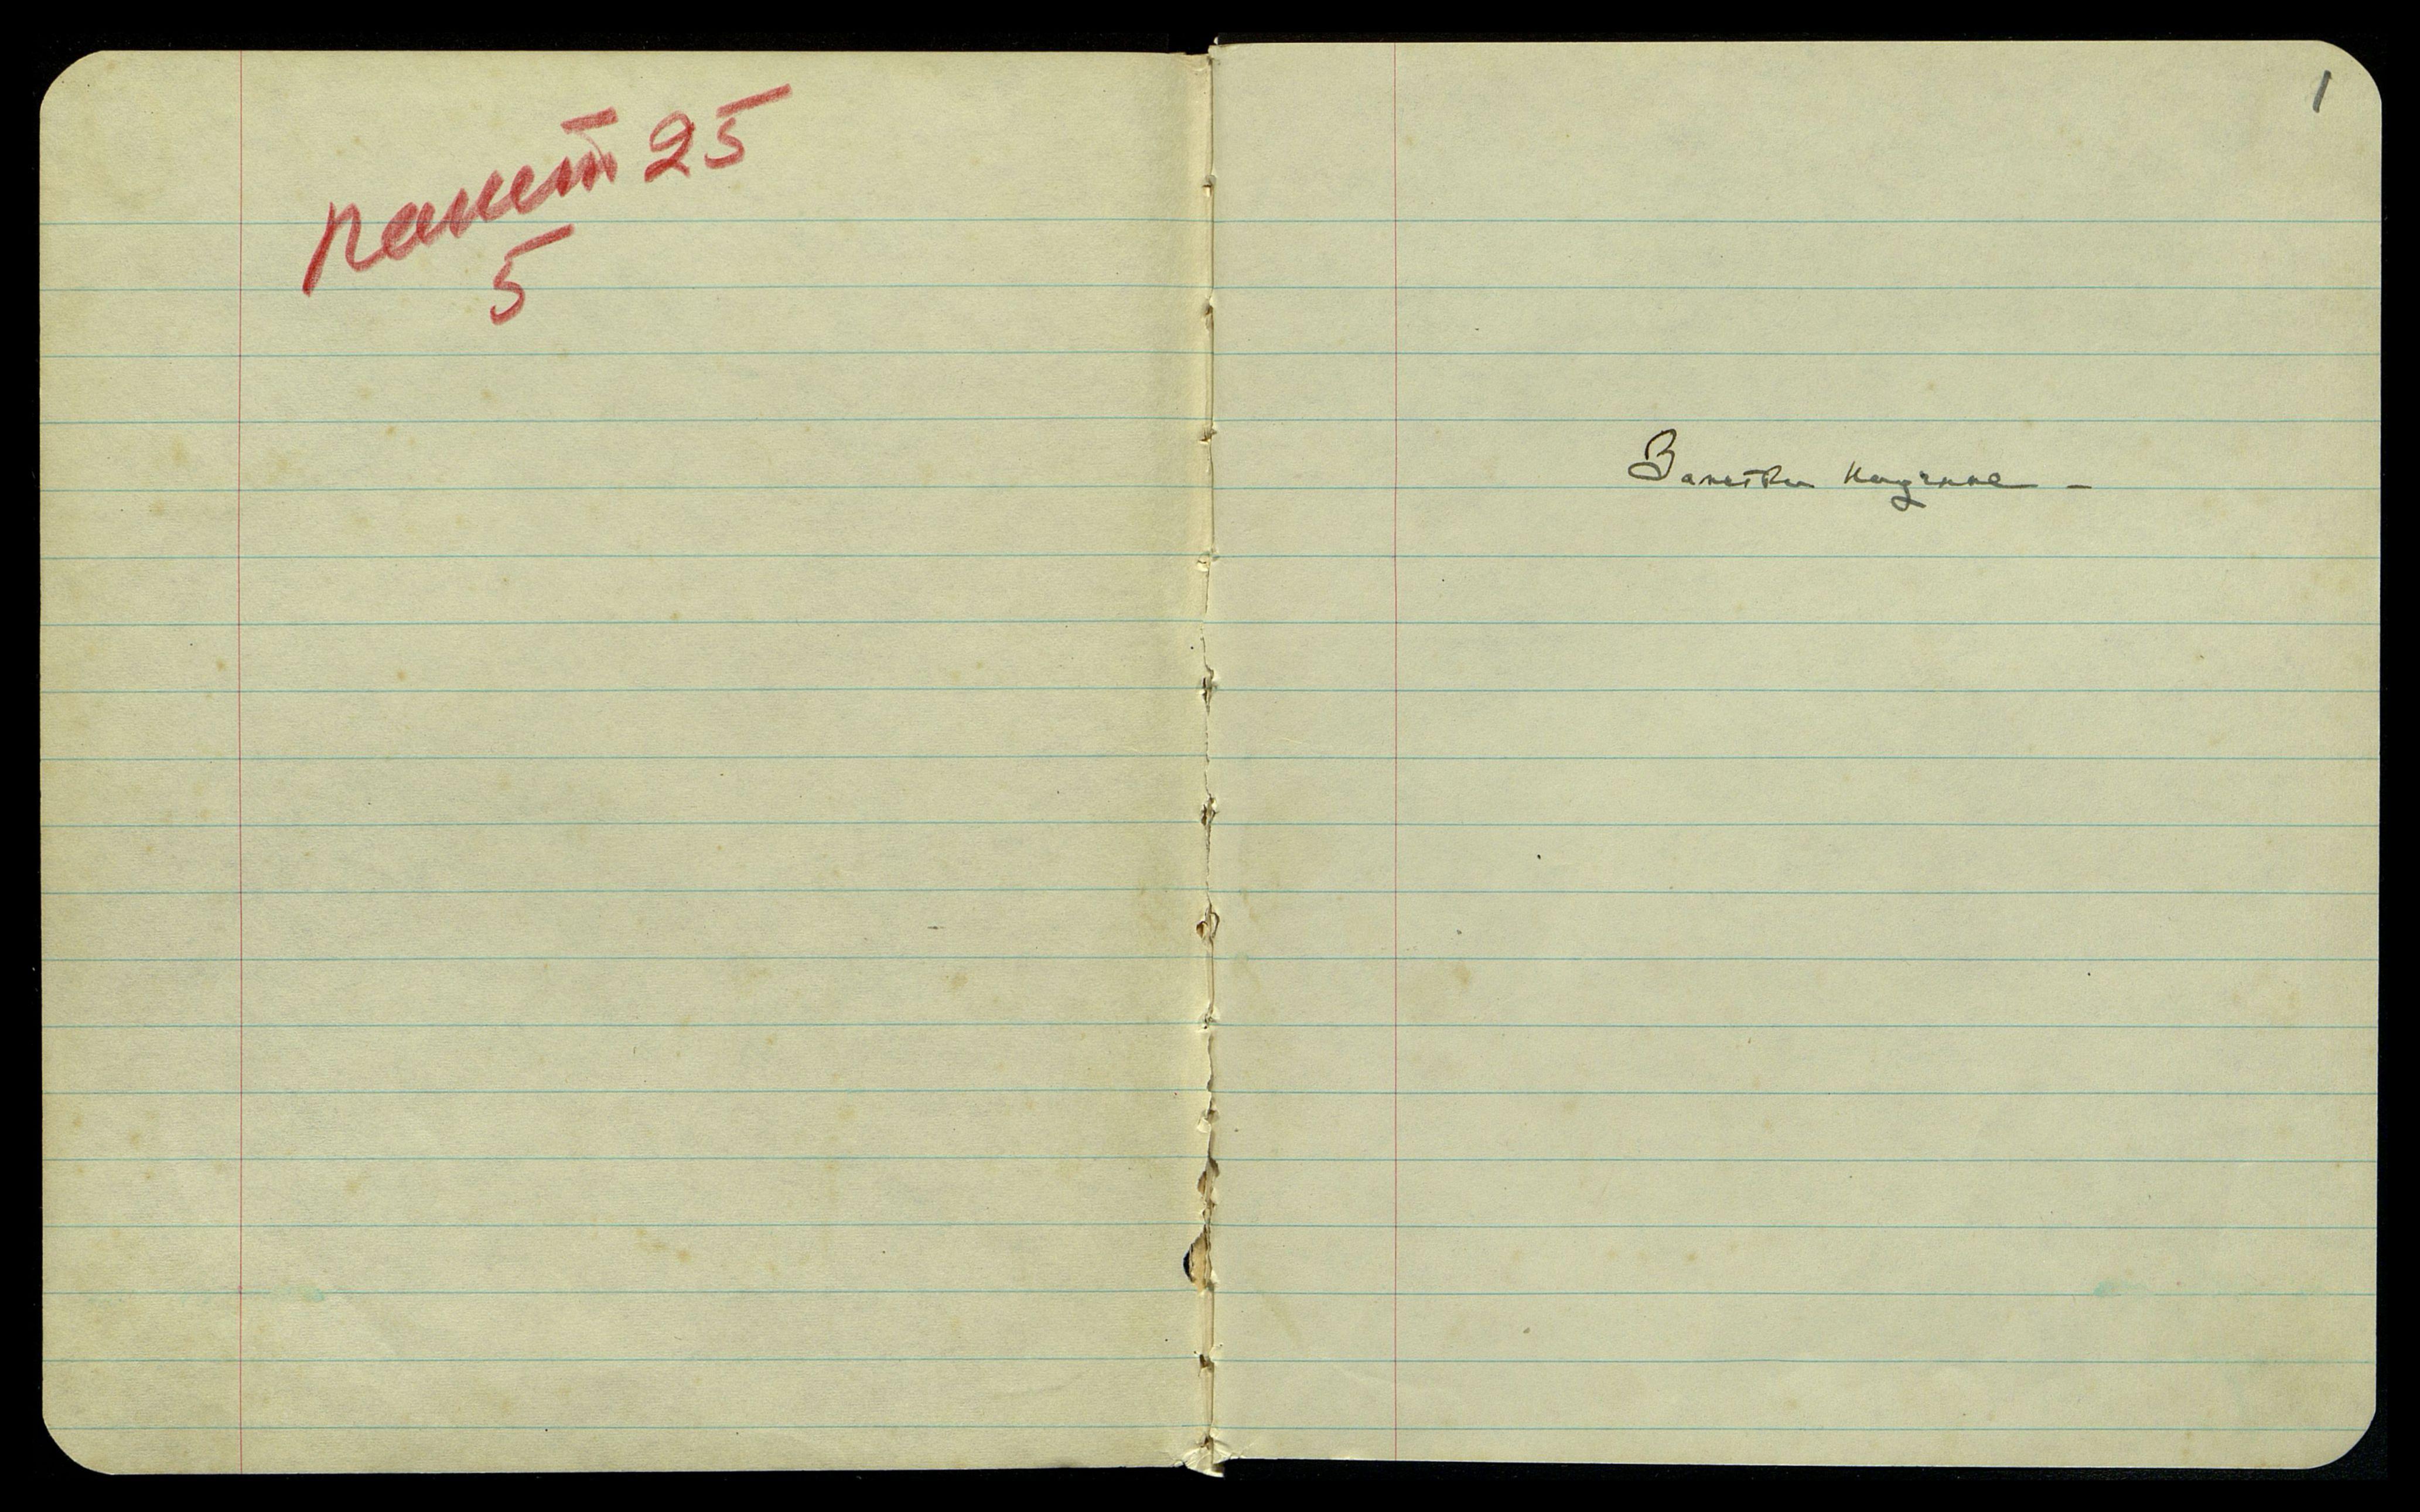 пакет 25
5
1
Заметки научные –